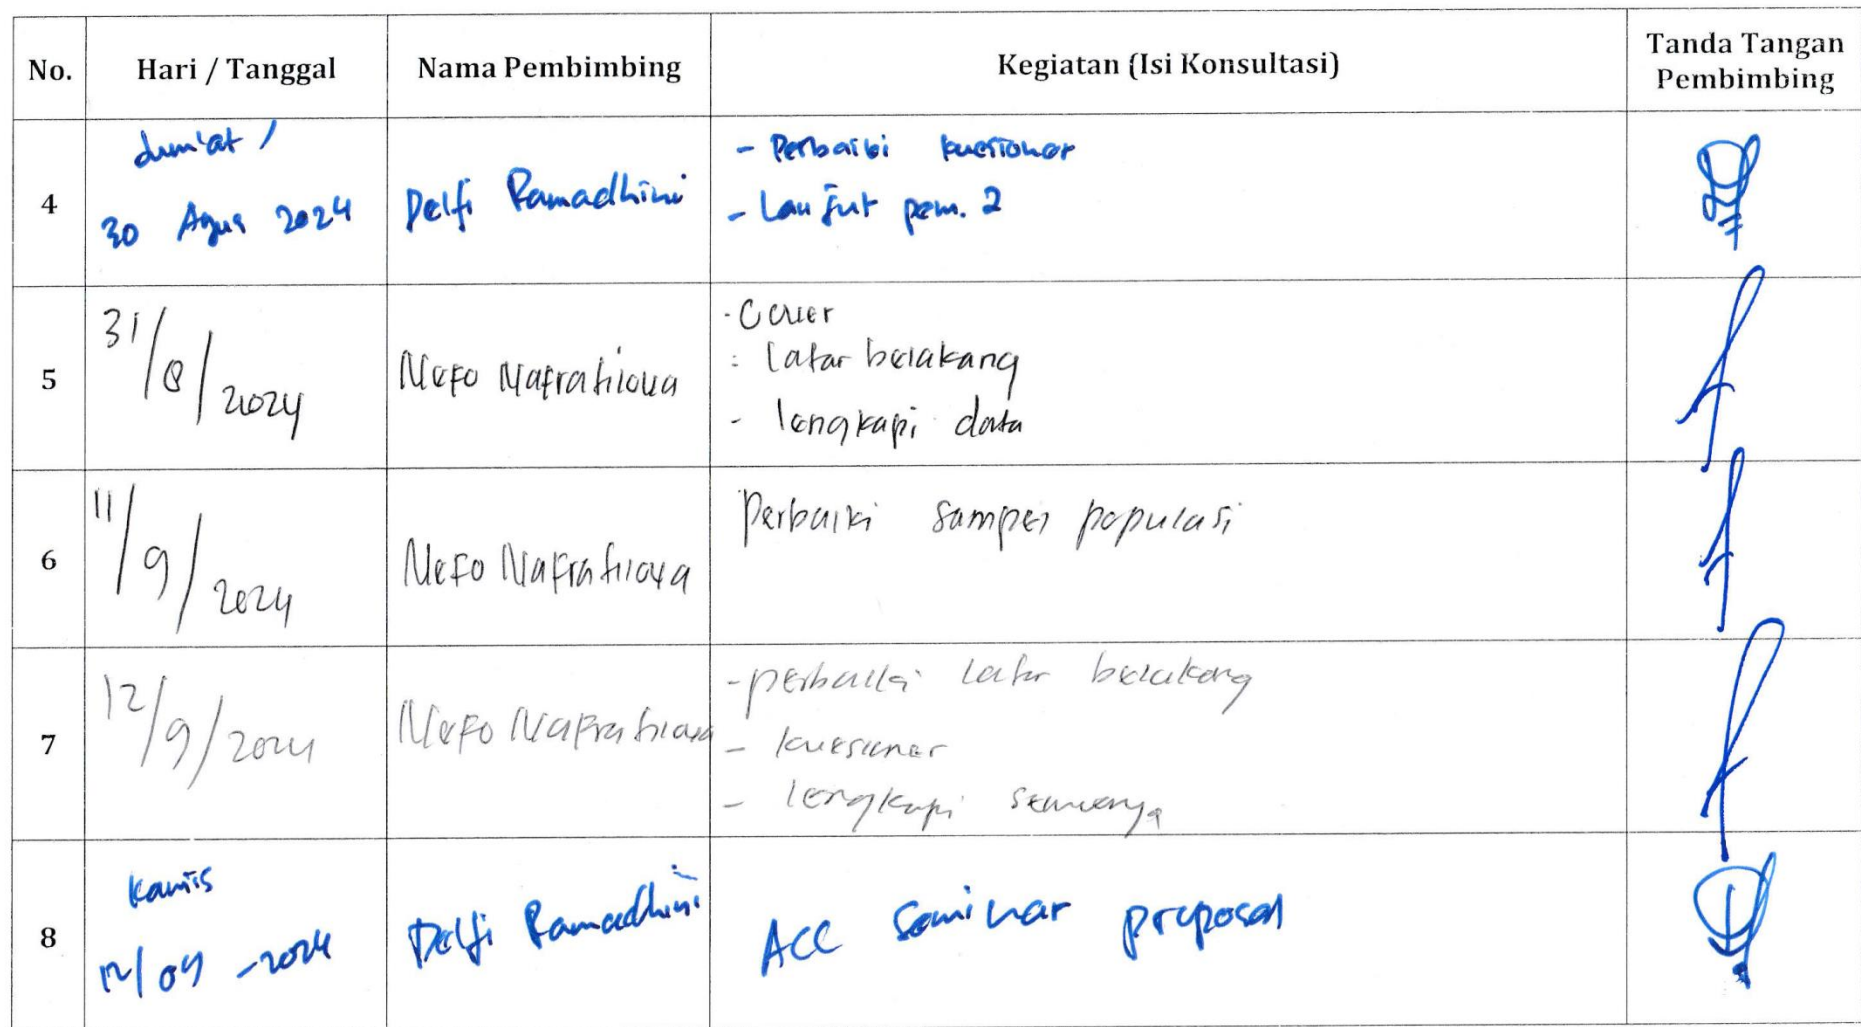 No. Hari / Tanggal Nama Pembimbing Kegiatan (Isi Konsultasi) Tanda Tangan
Pembimbing
4
Jum'at /
30 Agus 2024
Delfi Ramadhini
- Perbaiki kuesioner
- Lanjut pem. 2
5
31/8/2024
Nefo Nafratilova
- Cover
- latar belakang
- lengkapi data
6
11/9/2024
Nefo Nafratilova
Perbaiki sampel populasi
7
12/9/2024
Nefo Nafratilova
- perbaiki latar belakang
- kuesioner
- lengkapi semuanya
8
Kamis
12/09 -2024
Delfi Ramadhini
ACC Seminar proposal